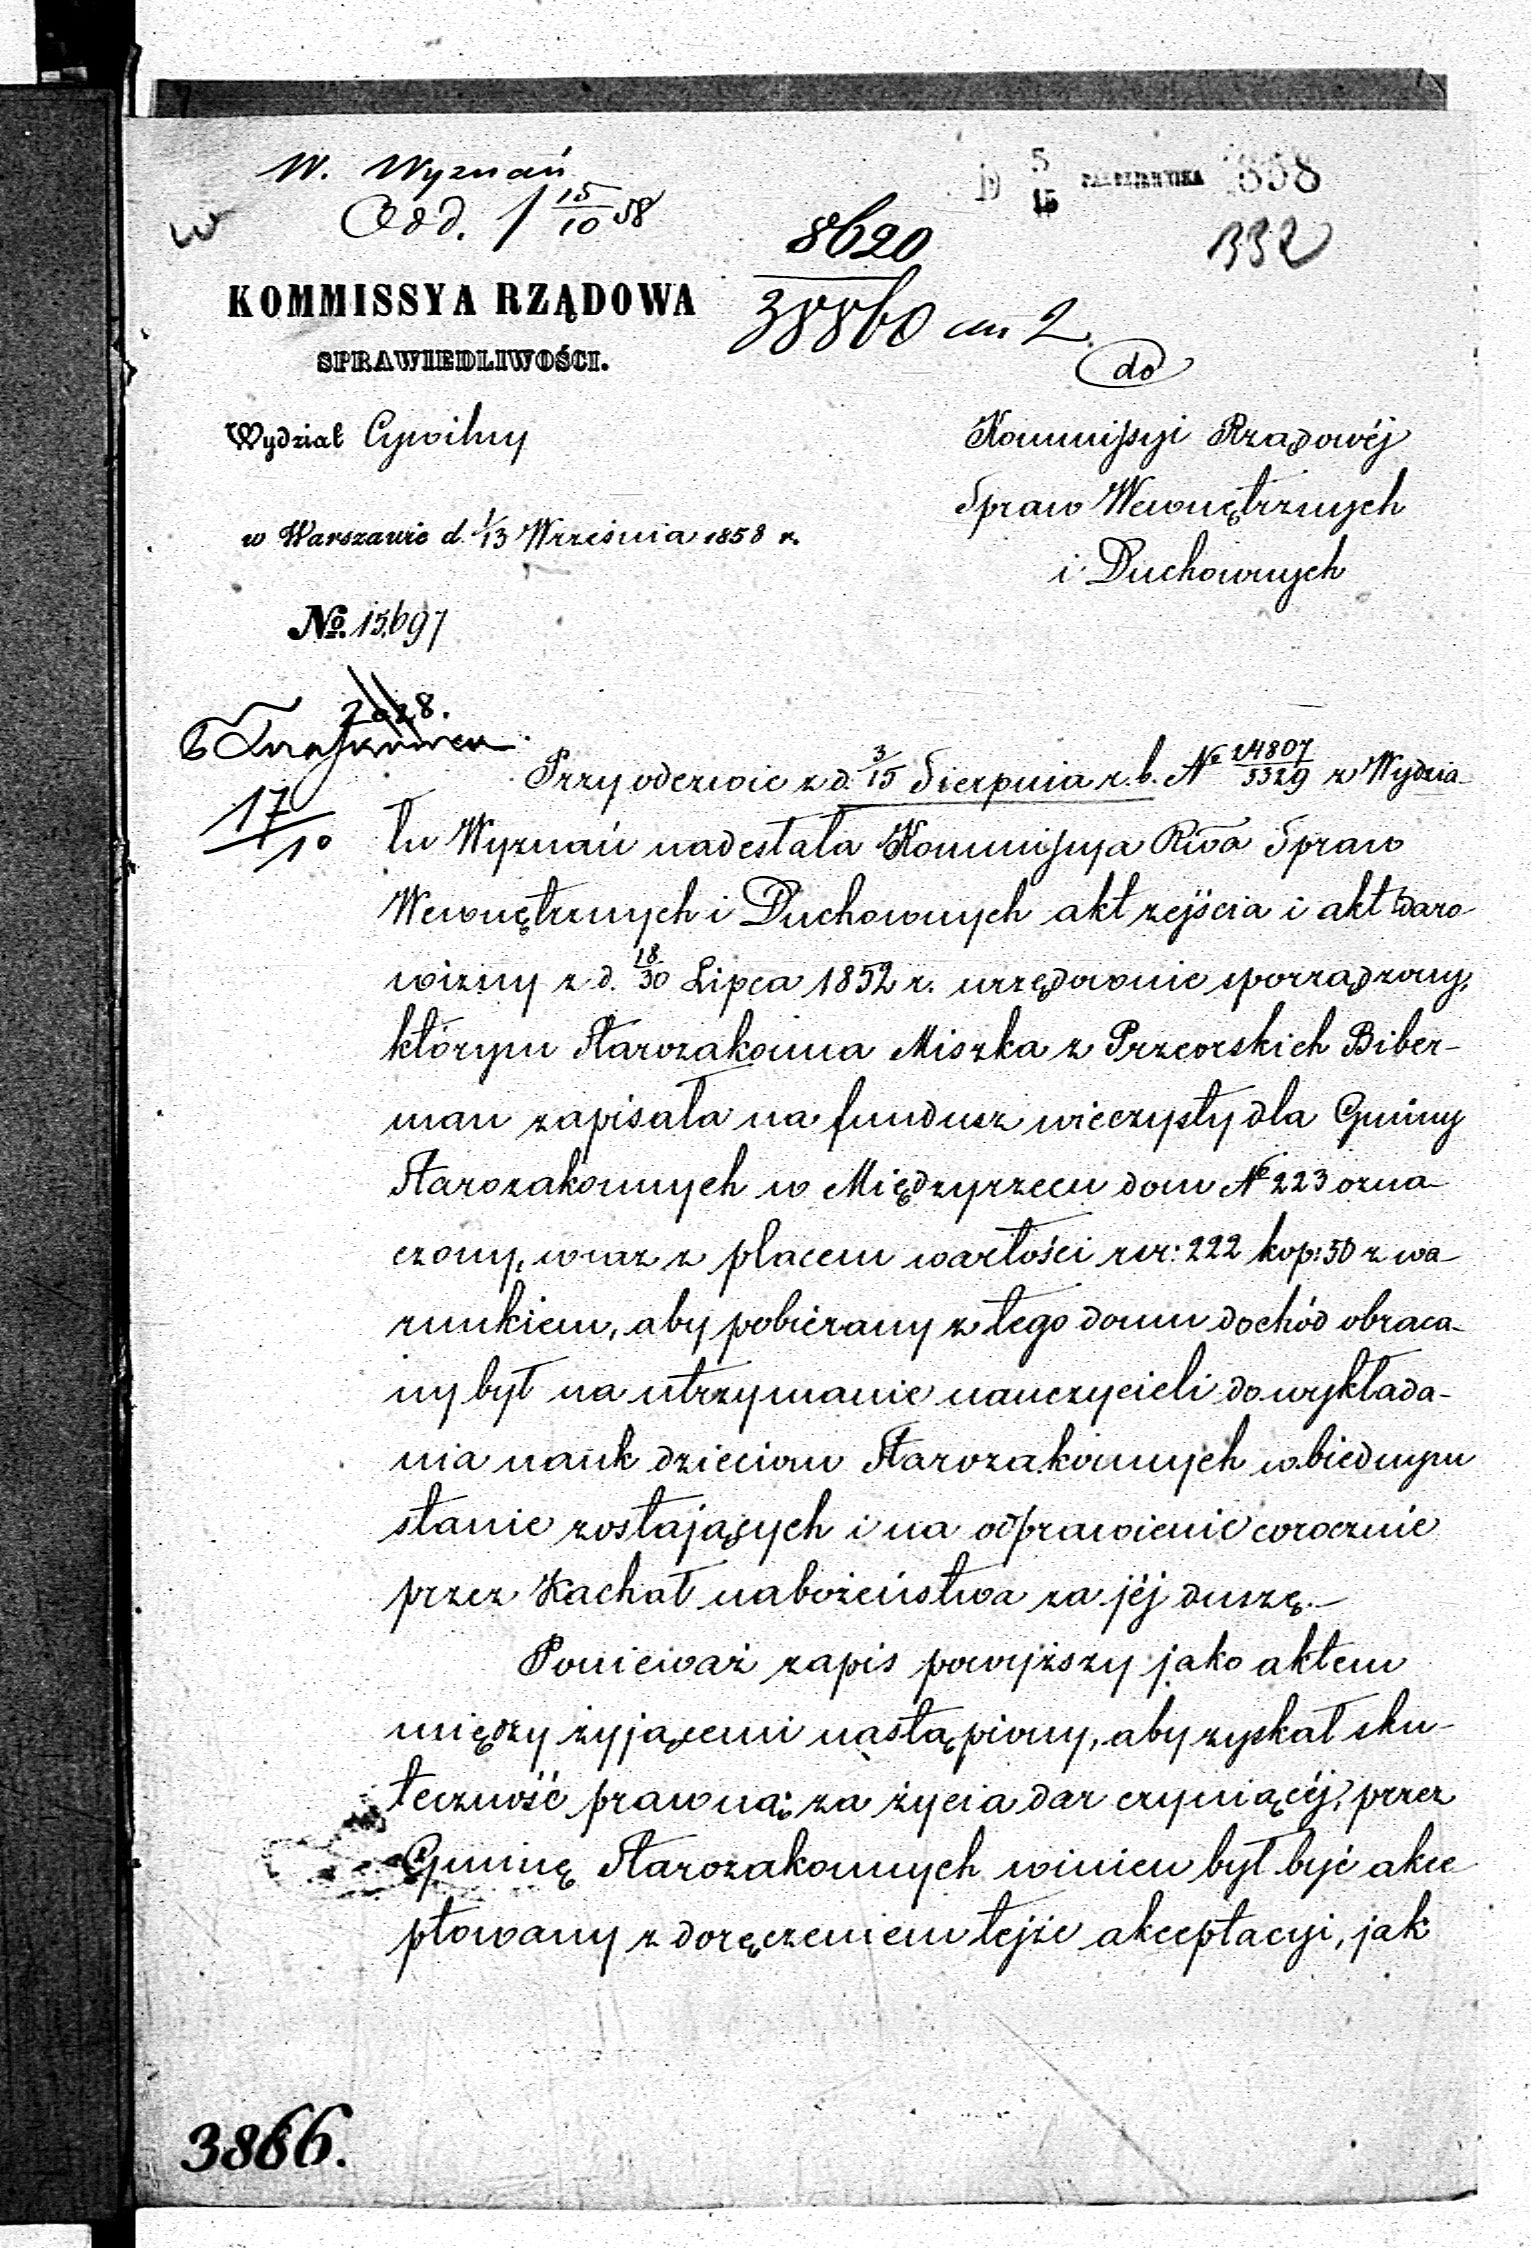 W. Wyznań
Odd. 1 15/10 58
5/15 PAŹDZIERNIKA 1858
332
8620
38860 an 2
KOMMISSYA RZĄDOWA
SPRAWIEDLIWOŚCI.
do
Wydział Cywilny
Kommissyi Rządowéj
Spraw Wewnętrznych
i Duchownych
w Warszawie d. 1/13 Września 1858 r.
No. 15,697
2028.
17/10
Przy odezwie z d. 3/15 Sierpnia r. b. No 14807/5329 z Wydzia-
łu Wyznań nadesłała Kommissya Rwa Spraw
Wewnętrznych i Duchownych akt zejścia i akt daro
wizny z d. 18/30 Lipca 1852 r. urzędownie sporządzony,
którym Starozakonna Miszka z Przeorskich Biber-
man zapisała na fundusz wieczysty dla Gminy
Starozakonnych w Międzyrzecu dom No 223 ozna-
czony, wraz z placem wartości rsr: 222 kop: 50 z wa-
runkiem, aby pobierany z tego domu dochód obraca-
ny był na utrzymanie nauczycieli do wykłada-
nia nauk dzieciom Starozakonnych w biednym
stanie zostających i na odprawienie corocznie
przez Kachał nabożeństwa za jéj duszę.—
Ponieważ zapis powyższy jako aktem
między żyjącemi nastąpiony, aby zyskał sku-
teczność prawną; za życia dar czyniącéj, przez
Gminę Starozakonnych winien był być akce
ptowany z doręczeniem tejże akceptacyi, jak
3866.